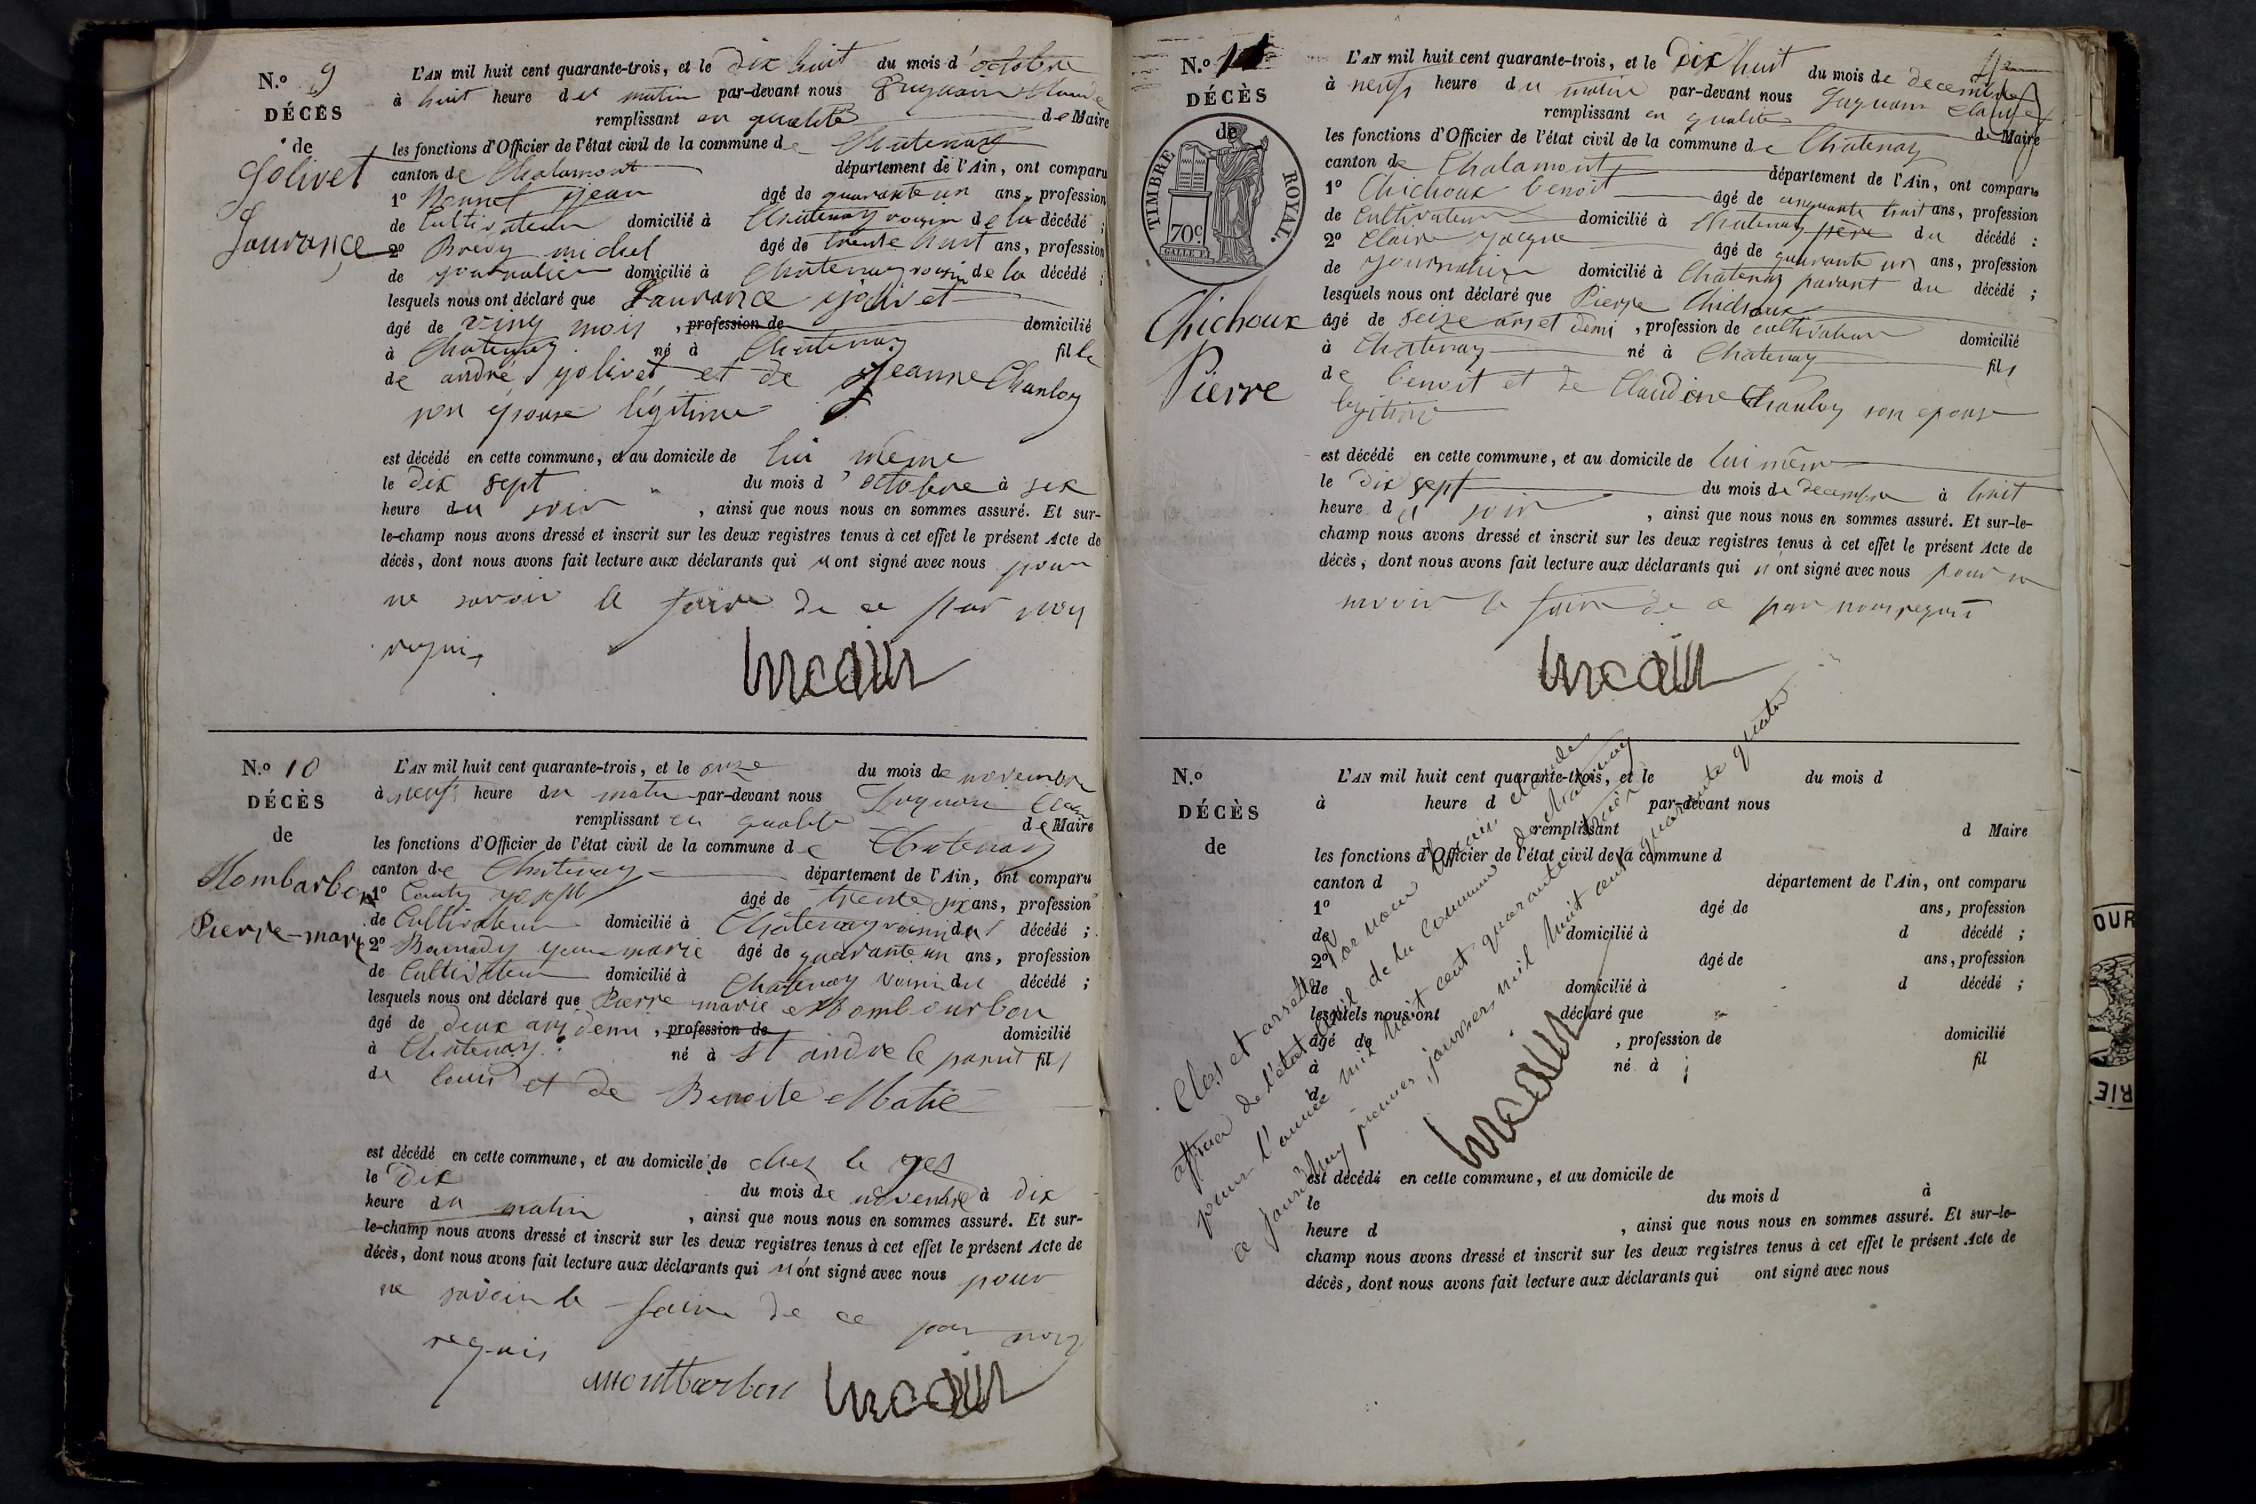 N.o 9
DÉCÈS
de
Jolivet
Jauvance
L'AN mil huit cent quarante-trois, et le dix huit du mois d'octobre
à huit heure du matin par-devant nous
remplissant en qualité de Maire
les fonctions d'Officier de l'état civil de la commune de Chatenay
canton de Chalamont département de l'Ain, ont comparu
1o jean âgé de quarante un ans, profession
de Cultivateur domicilié à Chatenay voisin de la décédé ;
2o Brevy michel âgé de trente huit ans, profession
de journalier domicilié à Chatenay voisin de la décédé ;
lesquels nous ont déclaré que Jauvance jolivet
âgé de cinq mois , profession de domicilié
à Chatenay né à Chatenay fille
de andré jolivet et de Jeanne Chanloy
son épouse légitime
est décédé en cette commune, et au domicile de lui même
le dix sept du mois d'octobre à six
heure du soir , ainsi que nous nous en sommes assuré. Et sur-
le-champ nous avons dressé et inscrit sur les deux registres tenus à cet effet le présent Acte de
décès, dont nous avons fait lecture aux déclarants qui n ont signé avec nous pour
ne savoir le faire de ce par nous
requis
N.o 10
DÉCÈS
de
Mombarbon
Pierre-marie
L'AN mil huit cent quarante-trois, et le onze du mois de novembre
à neuf heure du matin par-devant nous
remplissant en qualité de Maire
les fonctions d'Officier de l'état civil de la commune de Chatenay
canton de Chatenay département de l'Ain, ont comparu
1o joseph âgé de trente six ans, profession
de Cultivateur domicilié à Chatenay voisin du décédé ;
2o jean marie âgé de quarante un ans, profession
de Cultivateur domicilié à Chatenay voisin du décédé ;
lesquels nous ont déclaré que Pierre marie Mombourbon
âgé de deux ans demi , profession de domicilié
à Chatenay né à St andré le panut fils
de louis et de Benoite Matie
est décédé en cette commune, et au domicile de chez le
le Dix du mois de novembre à dix
heure du matin , ainsi que nous nous en sommes assuré. Et sur-
le-champ nous avons dressé et inscrit sur les deux registres tenus à cet effet le présent Acte de
décès, dont nous avons fait lecture aux déclarants qui n ont signé avec nous pour
ne savoir le faire de ce par nous
requis
Montbarbon
N.o 11
DÉCÈS
de
TIMBRE ROYAL.
70c
Chichoux
Pierre
L'AN mil huit cent quarante-trois, et le Dix huit du mois de decembre
à neuf heure du matin par-devant nous Claude
remplissant en qualité de Maire
les fonctions d'Officier de l'état civil de la commune de Chatenay
canton de Chalamont département de l'Ain, ont comparu
1o Chichoux benoit âgé de cinquante huit ans, profession
de Cultivateur domicilié à Chatenay père du décédé :
2o Claire jacque âgé de quarante un ans, profession
de journalier domicilié à Chatenay parant du décédé ;
lesquels nous ont déclaré que Pierre Chichoux
âgé de seize ans et demi , profession de cultivateur domicilié
à Chatenay né à Chatenay fils
de benoit et de Claudine Chanloy son épouse
legitime
est décédé en cette commune, et au domicile de lui même
le dix sept du mois de decembre à huit
heure du soir , ainsi que nous nous en sommes assuré. Et sur-le-
champ nous avons dressé et inscrit sur les deux registres tenus à cet effet le présent Acte de
décès, dont nous avons fait lecture aux déclarants qui n ont signé avec nous pour ne
savoir le faire de ce par nous requis
N.o
DÉCÈS
de
L'AN mil huit cent quarante-trois, et le du mois d
à heure d par-devant nous
remplissant d Maire
les fonctions d'Officier de l'état civil de la commune d
canton d département de l'Ain, ont comparu
1o âgé de ans, profession
de domicilié à d décédé ;
2o âgé de ans, profession
de domicilié à d décédé ;
lesquels nous ont déclaré que
âgé de , profession de domicilié
à né à fil
d
est décédé en cette commune, et au domicile de
le du mois d à
heure d , ainsi que nous nous en sommes assuré. Et sur-le-
champ nous avons dressé et inscrit sur les deux registres tenus à cet effet le présent Acte de
décès, dont nous avons fait lecture aux déclarants qui ont signé avec nous
Clos et arrêté par nous claude
de l'état civil de la commune de Chatenay
pour l'année mil huit cent quarante trois
ce jourd'huy premier janvier mil huit cent quarante quatre